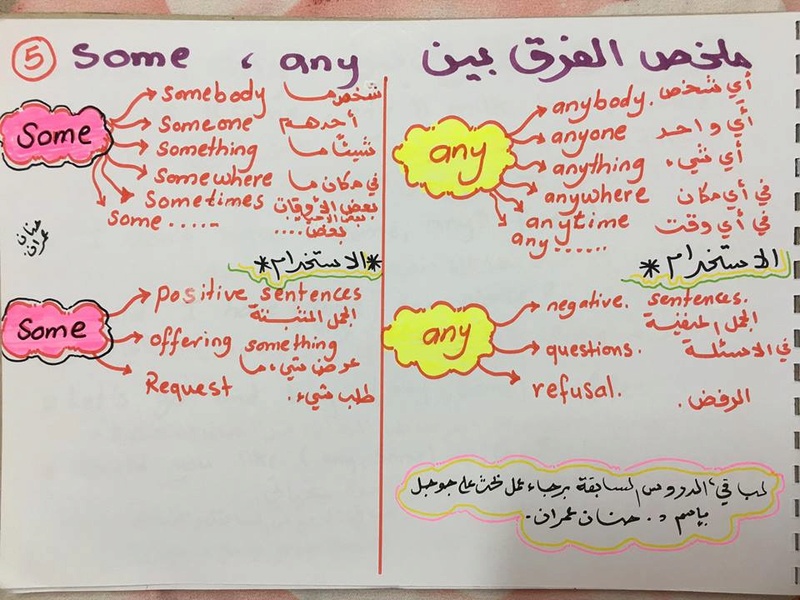 ملخص الفرق بين some ، any
5
Some
somebody شخص ما
Someone أحدهم
Something شيئا ما
Somewhere في مكان ما
Sometimes بعض الأوقات
some ...... بعض ....
حنان عمران
*الاستخدام*
Some
positive sentences
الجمل المثبتة
offering something
عرض شيء ما
Request طلب شيء.
any
anybody. أي شخص
anyone أي واحد
anything أي شيء
anywhere في أي مكان
anytime في أي وقت
any......
الاستخدام *
any
negative. sentences.
الجمل المنفية
questions. في الاسئلة
refusal. الرفض.
لباقي الدروس السابقة برجاء عمل بحث على جوجل
بإسم د. حنان عمران.